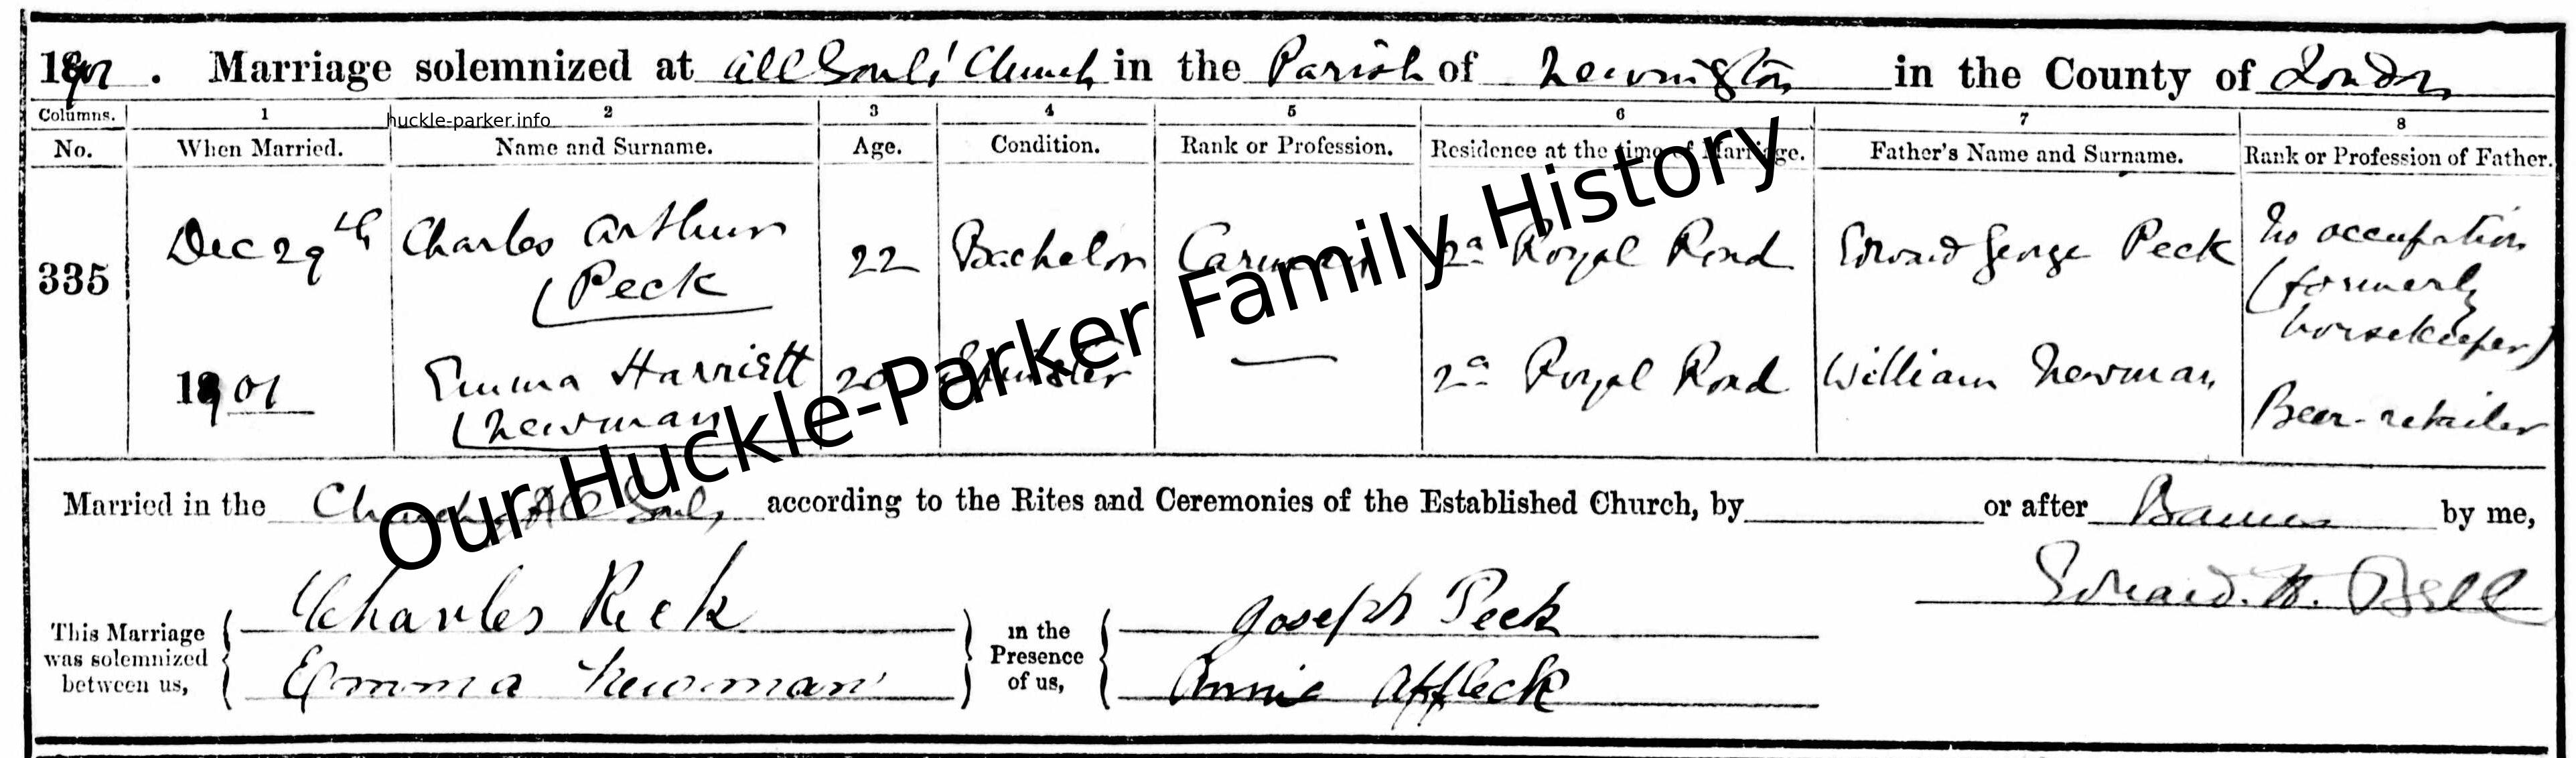 1901. Marriage solemnized at All Souls' Church in the Parish of Newington in the County of London
Columns. 1 2 3 4 5 6 7 8
huckle-parker.info
No. When Married. Name and Surname. Age. Condition. Rank or Profession. Residence at the time of Marriage. Father's Name and Surname. Rank or Profession of Father.
335 Dec 29th Charles Arthur 22 Bachelor Carman 2a Royal Road Edward George Peck No occupation
Peck (formerly
horsekeeper)
1901 Emma Harriett 20 Spinster — 2a Royal Road William Newman
Newman Beer-retailer
Our Huckle-Parker Family History
Married in the Church, All Souls, according to the Rites and Ceremonies of the Established Church, by or after Banns by me,
Charles Peck Joseph Peck Edward. H. Bell
This Marriage was solemnized between us, in the Presence of us,
Emma Newman Annie Affleck